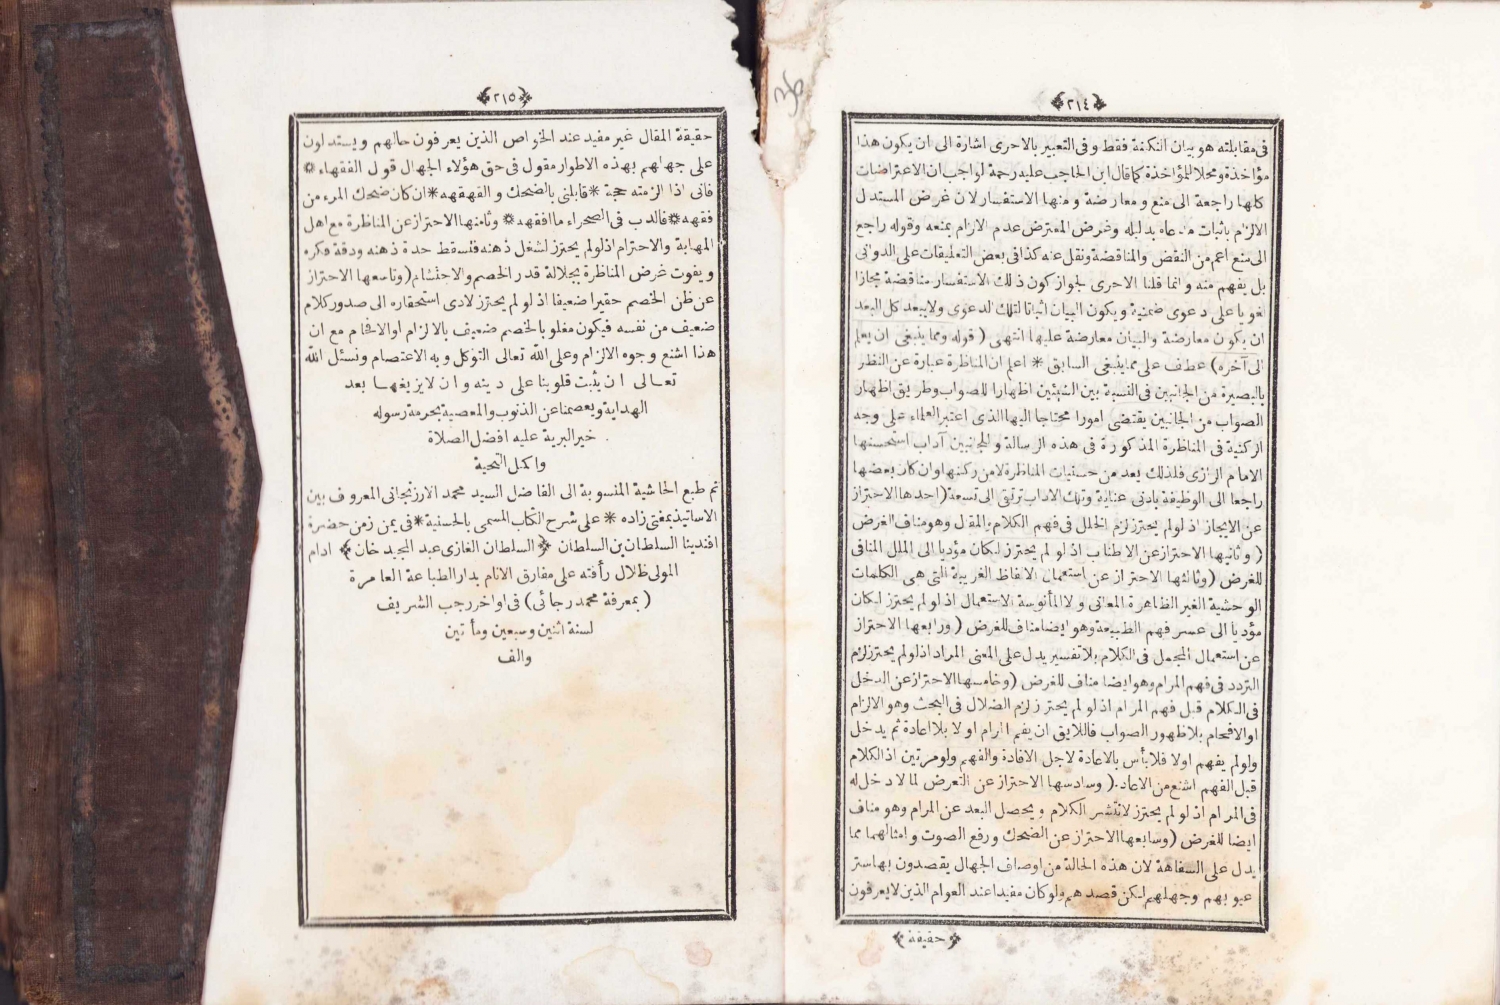 ﴿٢١٤﴾
فى مقابلته هو بيان النكتة فقط وفى التعبير بالاحرى اشارة الى ان يكون هذا
مؤاخذة ومحلا للمؤاخذة كما قال ابن الحاجب عليه رحمة لواجب ان الاعتراضات
كلها راجعة الى منع و معارضة و منها الاستفسار لان غرض المستدل
الالزام باثبات مدعاه بدليله وغرض المعترض عدم الالزام بمنعه وقوله راجع
الى منع اعم من النقض والمناقضة ونقل عنه كذا فى بعض التعليقات على الدوانى
بل يفهم منه وانما قلنا الاحرى لجواز كون ذلك الاستفسار مناقضة مجازا
لغويا على دعوى ضمنية ويكون البيان اثباتا لتلك الدعوى ولا يبعد كل البعد
ان يكون معارضة والبيان معارضة عليها انتهى ( قوله ومما ينبغى ان يعلم
الى آخره) عطف على مما ينبغى السابق * اعلم ان المناظرة عبارة عن النظر
بالبصيرة من الجانبين فى النسبة بين الشيئين اظهارا للصواب وطريق اظهار
الصواب من الجانبين يقتضى امورا محتاجا اليها الذى اعتبر العلماء على وجه
الركنية فى المناظرة المذكورة فى هذه الرسالة وللجانبين آداب استحسنها
الامام الرازى فلذلك يعد من حسنيات المناظرة لا من ركنها وان كان بعضها
راجعا الى الوظيفة بادنى عناية وتلك الاداب ترتقى الى تسعة (احدها الاحتراز
عن الايجاز اذ لو لم يحترز لزم الخلل فى فهم الكلام المقل وهو مناف الغرض
( وثانيها الاحتراز عن الاطناب اذ لو لم يحترز لكان مؤديا الى الملل المنافى
للغرض (وثالثها الاحتراز عن استعمال الالفاظ الغريبة التى هى الكلمات
الوحشية الغير الظاهرة المعانى ولا المأنوسة الاستعمال اذ لو لم يحترز لكان
مؤديا الى عسر فهم الطبيعة وهو ايضا مناف للغرض ( ورابعها الاحتراز
عن استعمال المجمل فى الكلام بلا تفسير يدل على المعنى المراد اذ لو لم يحترز لزم
التردد فى فهم المرام وهو ايضا مناف للغرض (وخامسها الاحتراز عن الدخل
فى الكلام قبل فهم المرام اذ لو لم يحترز لزم الضلال فى البحث وهو الالزام
او الافحام بلا ظهور الصواب فاللايق ان يفهم المرام اولا بلا اعادة ثم يدخل
ولو لم يفهم اولا فلا بأس بالاعادة لاجل الافادة والفهم ولو مرتين اذ الكلام
قبل الفهم اشنع من الاعاد ( وسادسها الاحتراز عن التعرض لما لا دخل له
فى المرام اذ لو لم يحترز لانتشر الكلام و يحصل البعد عن المرام وهو مناف
ايضا للغرض (وسابعها الاحتراز عن الضحك ورفع الصوت وامثالهما مما
يدل على السفاهة لان هذه الحالة من اوصاف الجهال يقصدون بها ستر
عيوبهم وجهلهم لكن قصدهم ولو كان مفيدا عند العوام الذين لا يعرفون
﴿حقيقة﴾
﴿٢١٥﴾
حقيقة المقال غير مفيد عند الخواص الذين يعرفون حالهم ويستدلون
على جهلهم بهذه الاطوار مقول فى حق هؤلاء الجهال قول الفقهاء *
فانى اذا الزمته حجة * قابلنى بالضحك والقهقهه * ان كان ضحك المرء من
فقهه * فالدب فى الصحراء ما افقهه * وثامنها الاحتراز عن المناظرة مع اهل
المهابة والاحترام اذ لو لم يحترز لشغل ذهنه فتسقط حدة ذهنه ودقة فكره
ويفوت غرض المناظرة بجلالة قدر الخصم والاحتشام (وتاسعها الاحتراز
عن ظن الخصم حقيرا ضعيفا اذ لو لم يحترز لادى استحقاره الى صدور كلام
ضعيف من نفسه فيكون مغلوبا لخصم ضعيف بالالزام او الافحام مع ان
هذا اشنع وجوه الالزام وعلى الله تعالى التوكل وبه الاعتصام ونسئل الله
تعالى ان يثبت قلوبنا على دينه وان لا يزيغها بعد
الهداية ويعصمنا عن الذنوب والمعصية بحرمة رسوله
خير البرية عليه افضل الصلاة
واكمل التحية
تم طبع الحاشية المنسوبة الى الفاضل السيد محمد الارزنجانى المعروف بين
الاساتيذ بمفتى زاده * على شرح الكتاب المسمى بالحسنية * فى يمن زمن حضرة
افندينا السلطان بن السلطان ﴿السلطان الغازى عبد المجيد خان﴾ ادام
المولى ظلال رأفته على مفارق الانام بدار الطباعة العامرة
( بمعرفة محمد رجائى) فى اواخر رجب الشريف
لسنة اثنين وسبعين ومأتين
والف